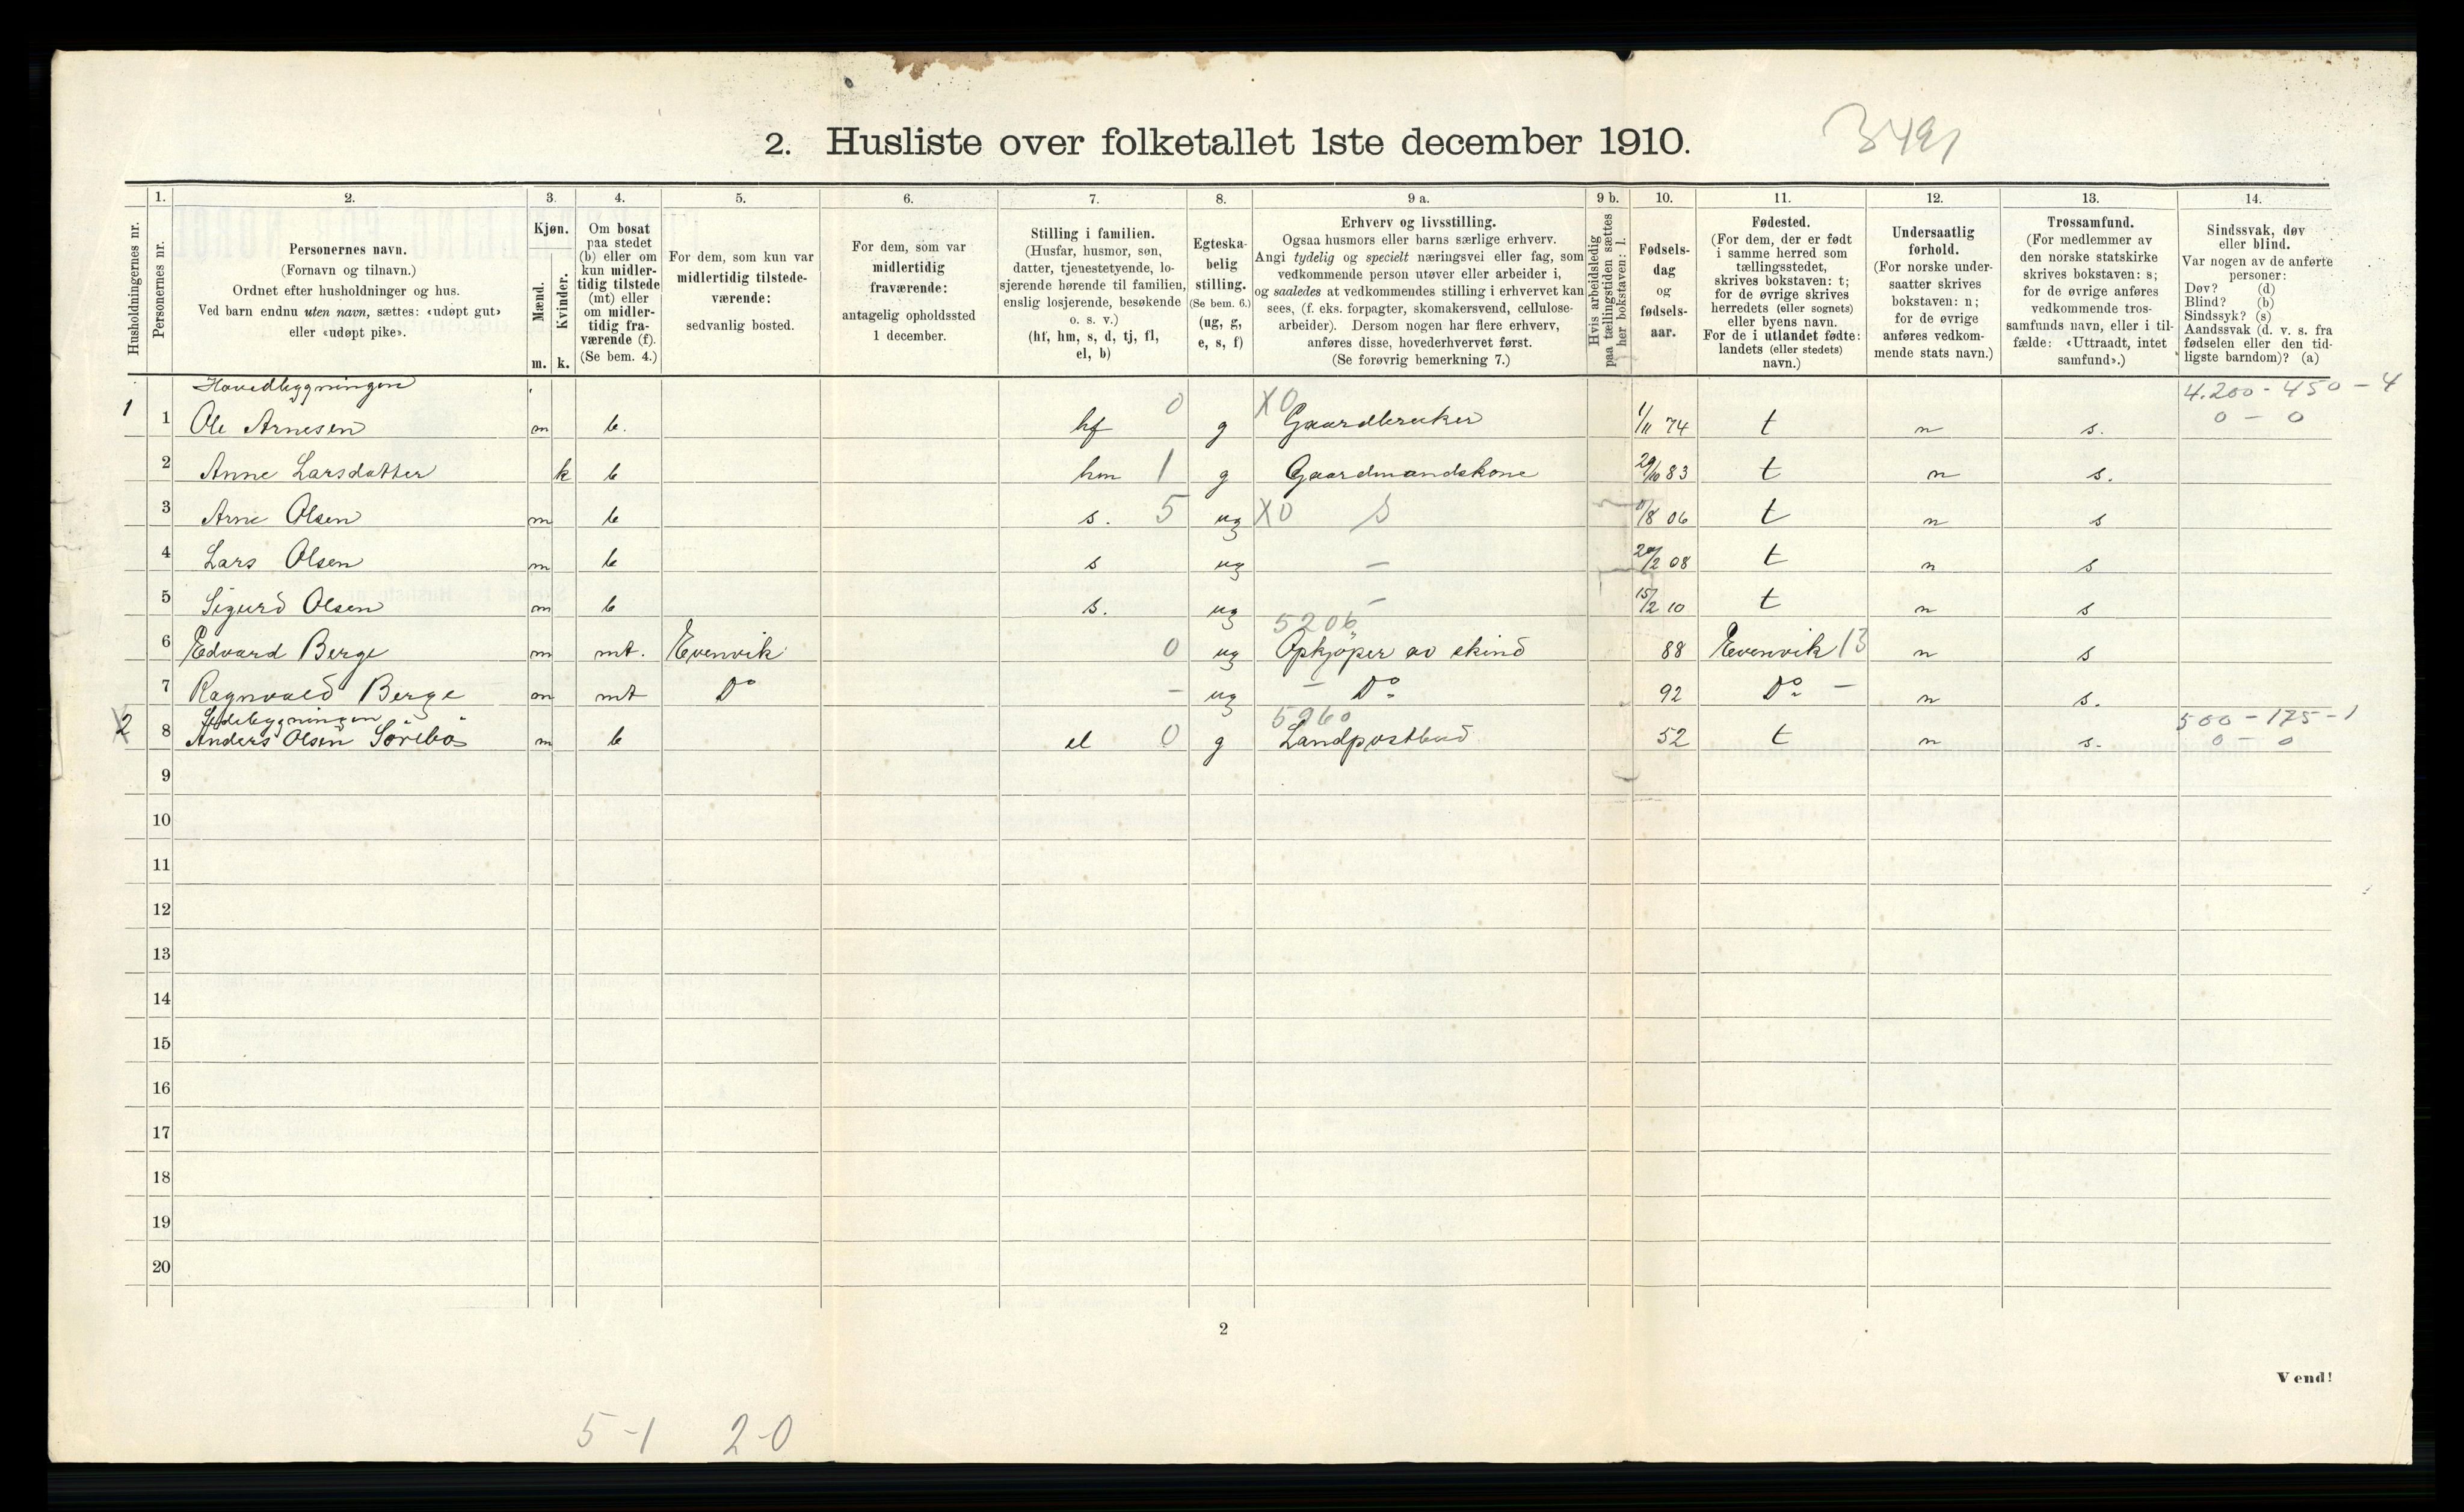 2. Husliste over folketallet 1ste december 1910.
3491
Husholdningernes nr.
1. Personernes nr.
2. Personernes navn.
(Fornavn og tilnavn.)
Ordnet efter husholdninger og hus.
Ved barn endnu uten navn, sættes: «udøpt gut»
eller «udøpt pike».
3. Kjøn.
Mænd. m.
Kvinder. k.
4. Om bosat
paa stedet
(b) eller om
kun midler-
tidig tilstede
(mt) eller
om midler-
tidig fra-
værende (f).
(Se bem. 4.)
5. For dem, som kun var
midlertidig tilstede-
værende:
sedvanlig bosted.
6. For dem, som var
midlertidig
fraværende:
antagelig opholdssted
1 december.
7. Stilling i familien.
(Husfar, husmor, søn,
datter, tjenestetyende, lo-
sjerende hørende til familien,
enslig losjerende, besøkende
o. s. v.)
(hf, hm, s, d, tj, fl,
el, b)
8. Egteska-
belig
stilling.
(Se bem. 6.)
(ug, g,
e, s, f)
9 a. Erhverv og livsstilling.
Ogsaa husmors eller barns særlige erhverv.
Angi tydelig og specielt næringsvei eller fag, som
vedkommende person utøver eller arbeider i,
og saaledes at vedkommendes stilling i erhvervet kan
sees, (f. eks. forpagter, skomakersvend, cellulose-
arbeider). Dersom nogen har flere erhverv,
anføres disse, hovederhvervet først.
(Se forøvrig bemerkning 7.)
9 b. Hvis arbeidsledig
paa tællingstiden sættes
her bokstaven: l.
10. Fødsels-
dag
og
fødsels-
aar.
11. Fødested.
(For dem, der er født
i samme herred som
tællingsstedet,
skrives bokstaven: t;
for de øvrige skrives
herredets (eller sognets)
eller byens navn.
For de i utlandet fødte:
landets (eller stedets)
navn.)
12. Undersaatlig
forhold.
(For norske under-
saatter skrives
bokstaven: n;
for de øvrige
anføres vedkom-
mende stats navn.)
13. Trossamfund.
(For medlemmer av
den norske statskirke
skrives bokstaven: s;
for de øvrige anføres
vedkommende tros-
samfunds navn, eller i til-
fælde: «Uttraadt, intet
samfund».)
14. Sindssvak, døv
eller blind.
Var nogen av de anførte
personer:
Døv? (d)
Blind? (b)
Sindssyk? (s)
Aandssvak (d. v. s. fra
fødselen eller den tid-
ligste barndom)? (a)
Hovedbygningen 4.200 - 450 - 4
1 1 Ole Arnesen m b. hf 0 g X0 Gaardbruker 1/11 74 t n s. 0 - 0
2 Anne Larsdatter k b hm 1 g Gaardmandskone 29/10 83 t n s.
3 Arne Olsen m b s. 5 ug X0 S /8 06 t n s
4 Lars Olsen m b s ug — 20/2 08 t n s
5 Sigurd Olsen m b s. ug — 15/2 10 t n s
5206
6 Edvard Berge m mt. Evenvik 0 ug Opkjöper av skind 88 Evenvik 13 n s
7 Ragnvald Berge m mt Do - ug - Do 92 Do - n s.
Sidebygningen 5960 500 - 175 - 1
2 8 Anders Olsen Sörebö m b el 0 g Landpostbud 52 t n s. 0 - 0
9
10
11
12
13
14
15
16
17
18
19
20
2
Vend!
5-1 2-0